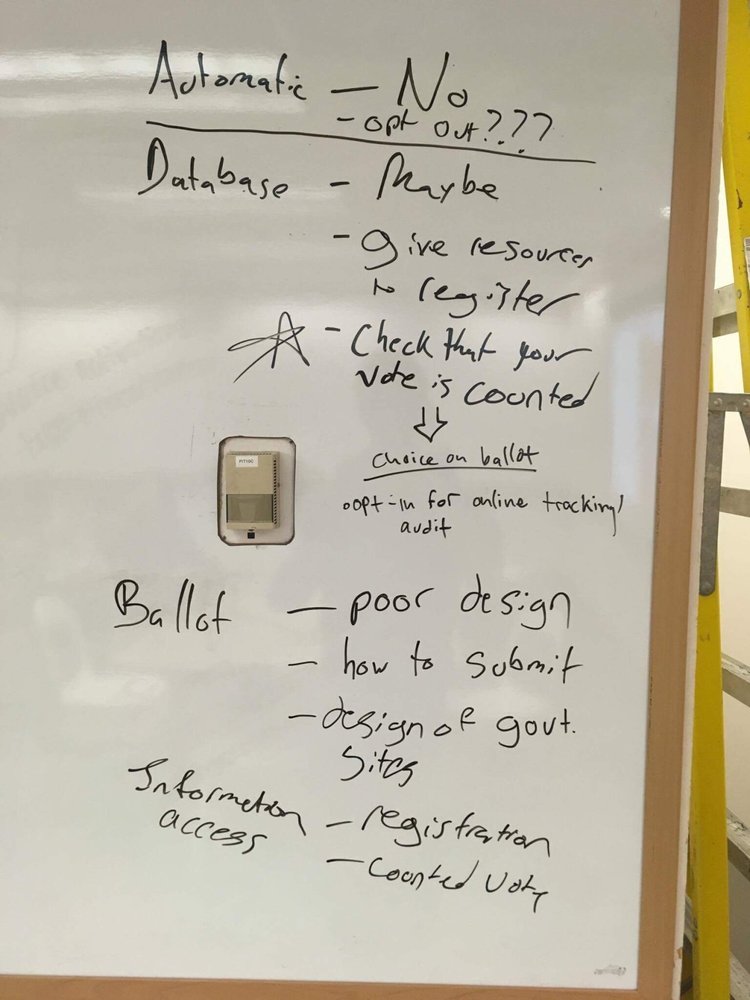 Automatic — No
- opt out???
Database - Maybe
- give resources
to register
- Check that your
vote is counted
⇓
choice on ballot
opt-in for online tracking/
audit
Ballot — poor design
- how to submit
- design of govt.
sites
Information
access
- registration
- counted vote